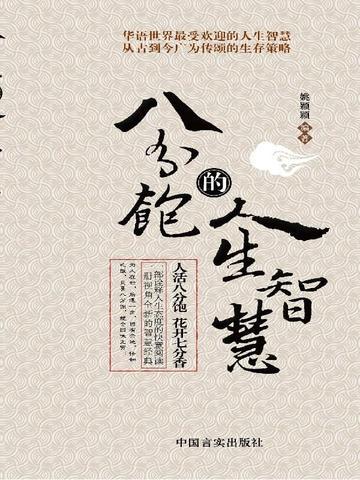 华语世界最受欢迎的人生智慧
从古到今广为传颂的生存策略
姚颖颖
编著
八分饱
的
人生智慧
人活八分饱 花开七分香
一部诠释人生态度的快意阅读
一册视角全新的智慧经典
中国言实出版社